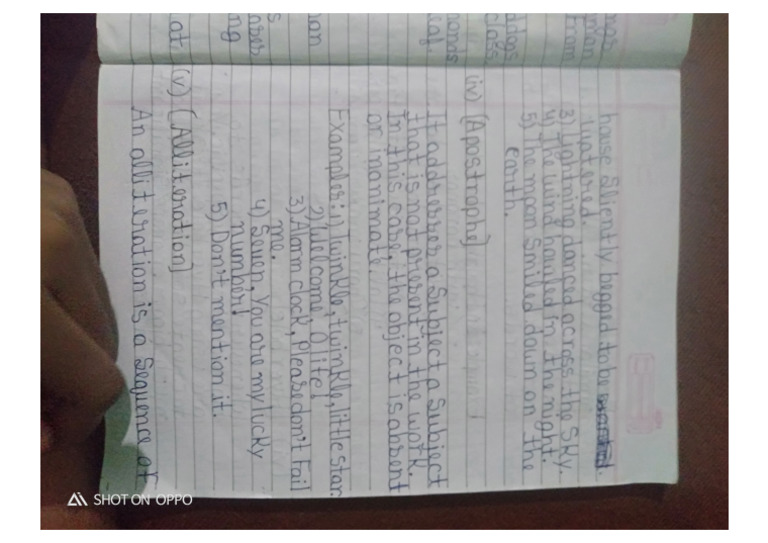 house Sliently begged to be
watered.
3) Lightning danced across the Sky.
4) The wind howled in the night.
5) The moon Smiled down on the
earth.
(iv) [Apostrophe]
It addresses a Subject a Subject
that is not present in the work.
In this case, the object is absent
or inanimate.
Examples: 1) Twinkle, twinkle, little star.
2) Welcome, O life!
3) Alarm clock, Please don't fail
me.
4) Seven, You are my lucky
number!
5) Don't mention it.
(v) [Alliteration]
An alliteration is a Sequence of
from
class
leaf.
ng
at
SHOT ON OPPO